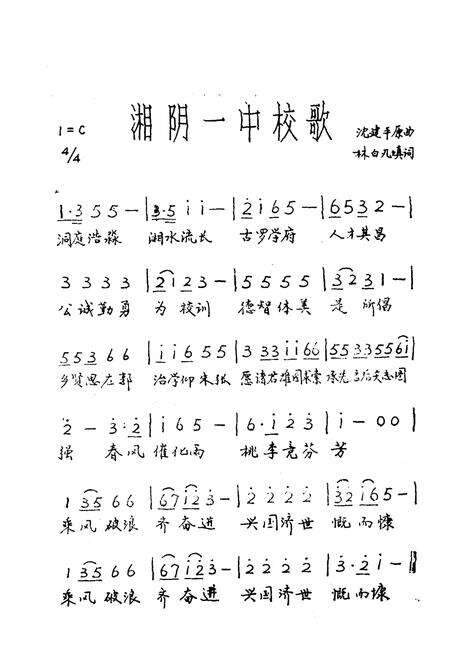 湘阴一中校歌
1=C
沈建平原曲
4/4
林白九填词
1·3 5 5 — | 3·5 i i — | 2 i 6 5 — | 6532 — |
洞庭浩淼 湘水流长 古罗学府 人才其昌
3 3 3 3 | 2123 — | 5 5 5 5 | 3231 — |
公诚勤勇 为校训 德智体美 是所倡
553 6 6 | i i 6 5 5 | 3 33 ii 66 | 55 33 55 6i |
乡贤思左郭 治学仰朱张 愿诸君雄图求索 承先启后矢志图
2 — 3·2 | i i 6 5 — | 6·i 2 3 | i — 0 0 |
强 春风催化雨 桃李竞芬芳
1 35 6 6 | 67i23 — | 2 2 2 2 | 32i65 — |
乘风破浪 齐奋进 兴国济世 慨而慷
1 35 6 6 | 67i23 — | 2 2 2 2 | 3·2 i — ‖
乘风破浪 齐奋进 兴国济世 慨而慷